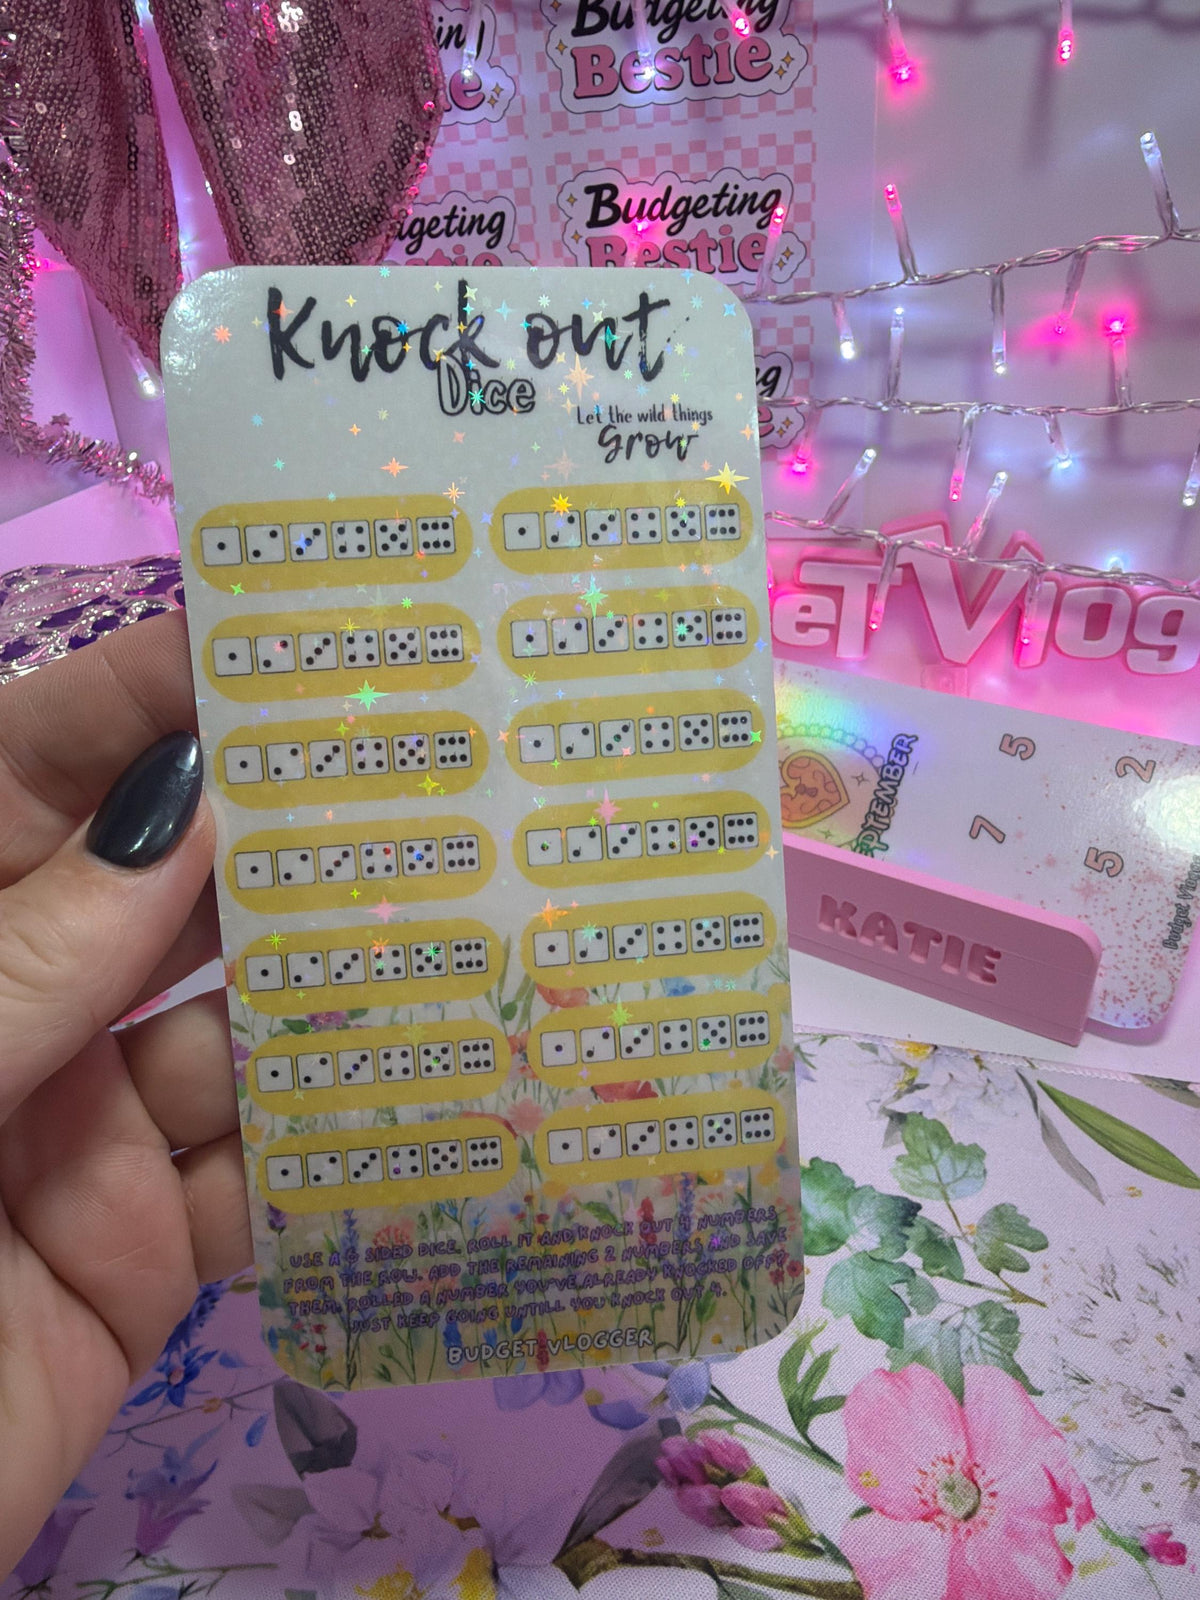 Budgeting
Bestie
Budgeting
Bestie
Knock out
Dice
Let the wild things
Grow
USE A 6 SIDED DICE, ROLL IT AND KNOCK OUT 4 NUMBERS
FROM THE ROLL. ADD THE REMAINING 2 NUMBERS AND SAVE
THEM. ROLLED A NUMBER YOU'VE ALREADY KNOCKED OFF?
JUST KEEP GOING UNTILL YOU KNOCK OUT 4.
BUDGET VLOGGER
eT Vlog
SEPTEMBER
5
2
7
5
KATIE